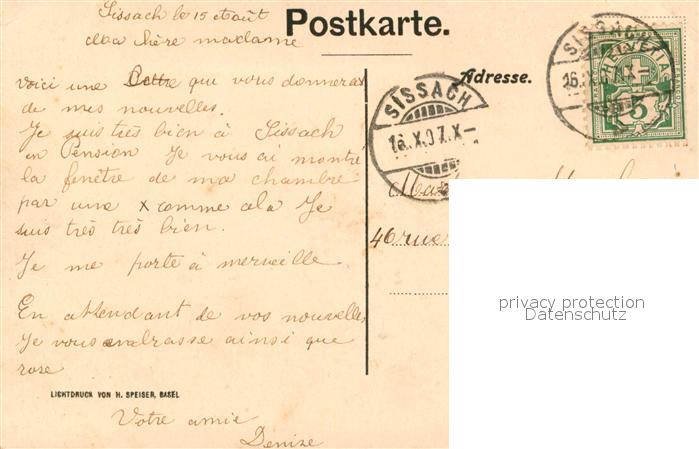 Sissach le 15 Août
Postkarte.
Ma chère madame
Adresse.
Voici une Lettre qui vous donnera
de mes nouvelles.
Je suis très bien à Sissach
en Pension Je vous ai montré
la fenêtre de ma chambre
par une x comme cela Je
suis très très bien.
Je me porte à merveille
En attendant de vos nouvelles,
Je vous embrasse ainsi que
rose
Votre amie
Denise
LICHTDRUCK VON H. SPEISER, BASEL
SISSACH
16.X.07.X-
SISSACH
16.X.07.X-
HELVETIA
5
46 rue
privacy protection
Datenschutz